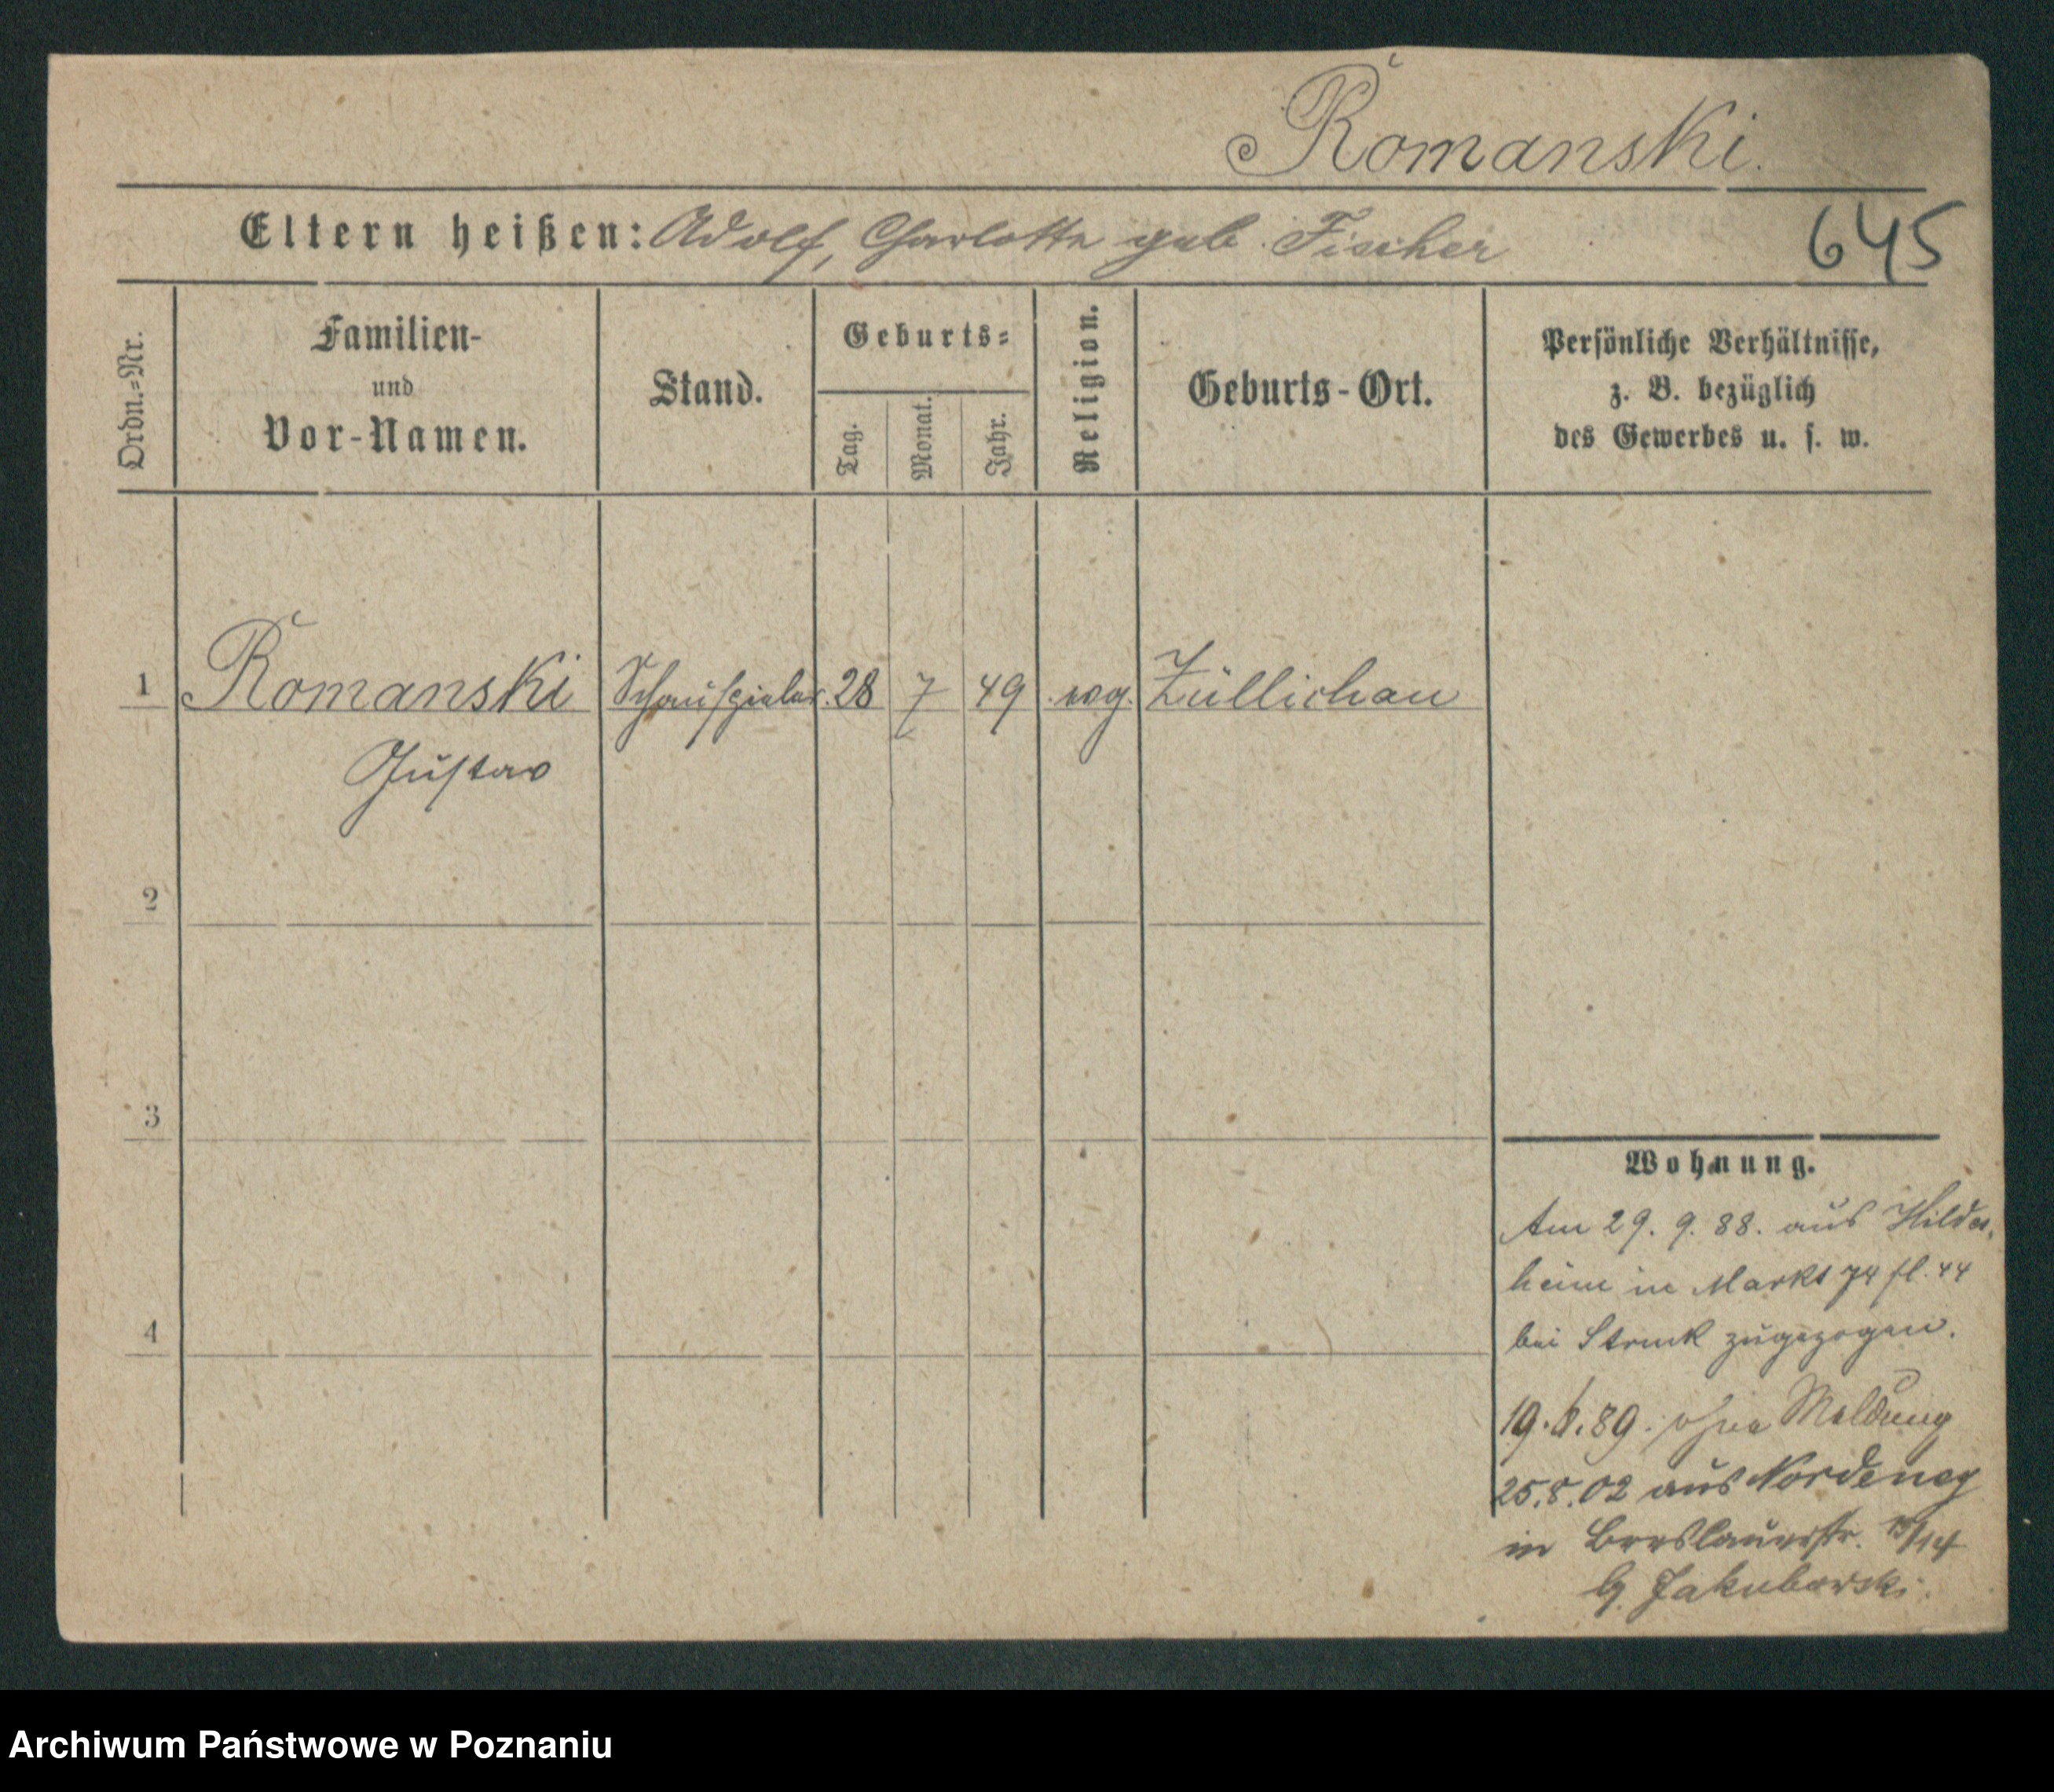 Romanski.
Eltern heißen: Adolf, Charlotte geb. Fischer
645
Ordn.=Nr.
Familien-
und
Vor-Namen.
Stand.
Geburts=
Tag.
Monat.
Jahr.
Religion.
Geburts-Ort.
Persönliche Verhältnisse,
z. B. bezüglich
des Gewerbes u. s. w.
1 Romanski Schauspieler. 28 7 49 evg. Züllichau
Gustav
2
3
4
Wohnung.
Am 29. 9. 88. aus Hildes-
heim in Markt 74 fl. 44
bei Struck zugezogen.
19. 89. ohne Meldung
25.8.02 aus Norderney
in Breslauerstr. /14
b/ Jakubowski.
Archiwum Państwowe w Poznaniu